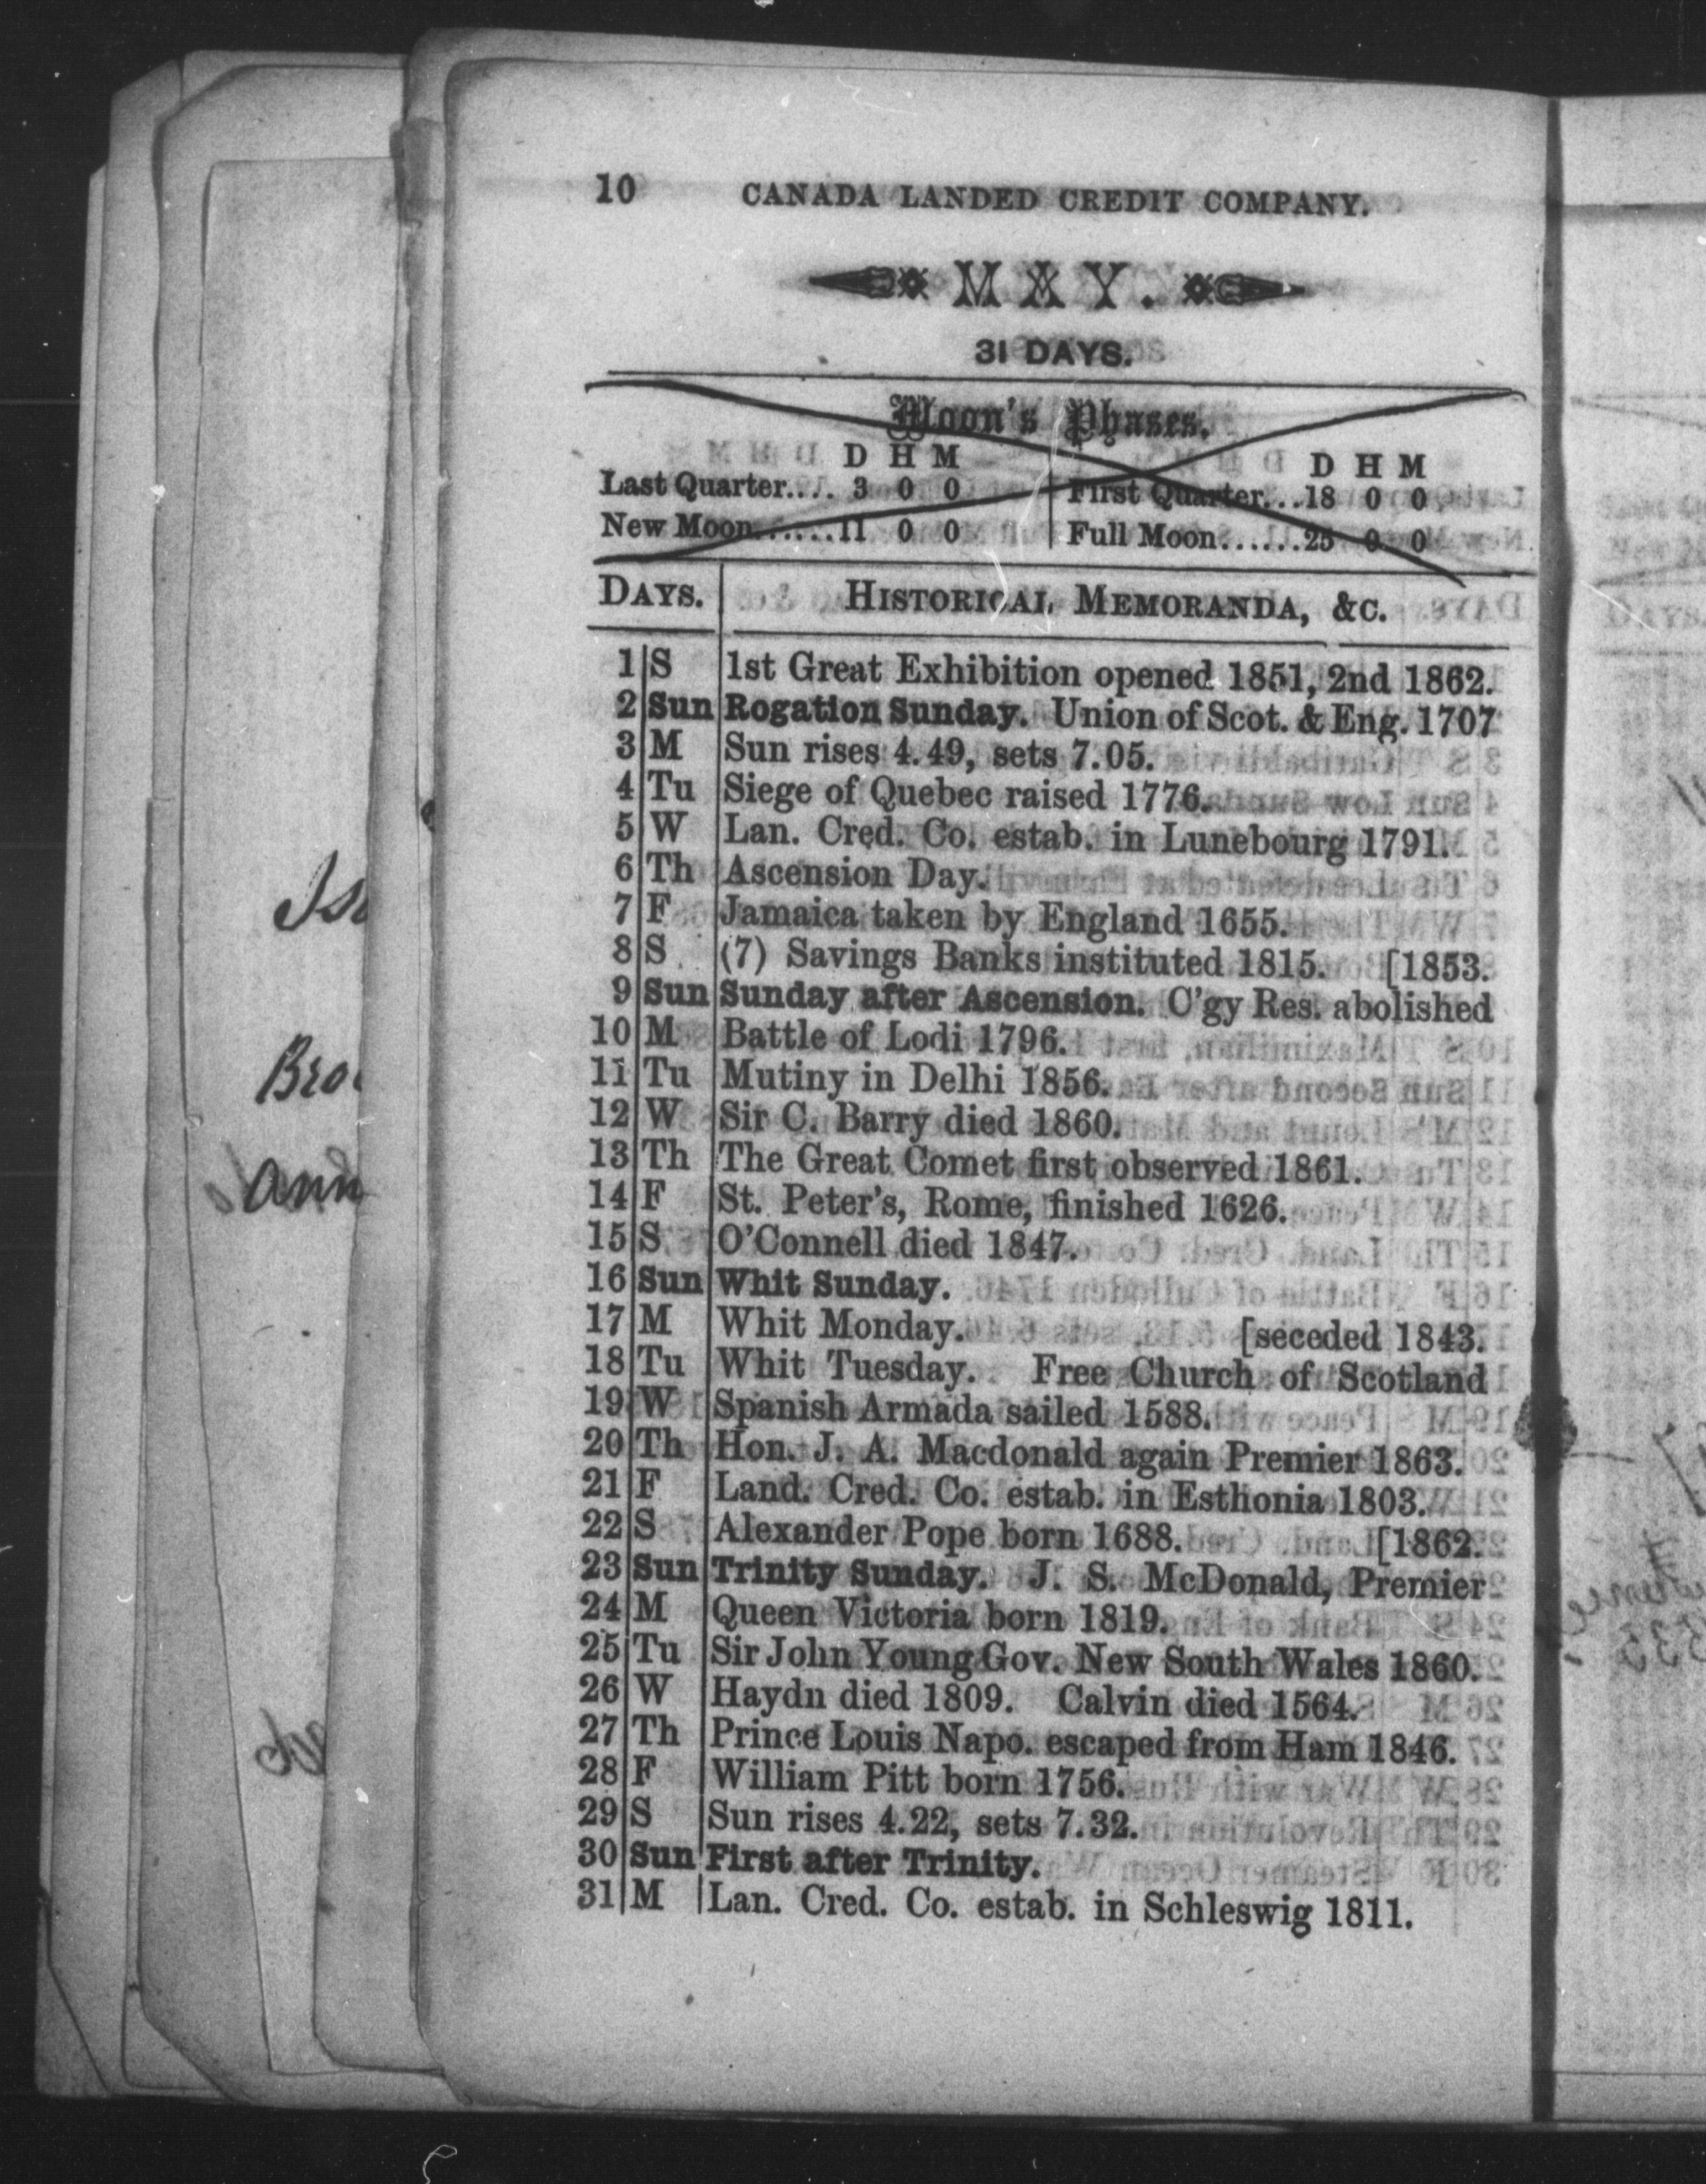 10 CANADA LANDED CREDIT COMPANY.
MAY.
31 DAYS.
Moon's Phases.
D H M D H M
Last Quarter.... 3 0 0 First Quarter...18 0 0
New Moon.......11 0 0 Full Moon......25 0 0
DAYS. HISTORICAL MEMORANDA, &C.
1 S 1st Great Exhibition opened 1851, 2nd 1862.
2 Sun Rogation Sunday. Union of Scot. & Eng. 1707
3 M Sun rises 4.49, sets 7.05.
4 Tu Siege of Quebec raised 1776.
5 W Lan. Cred. Co. estab. in Lunebourg 1791.
6 Th Ascension Day.
7 F Jamaica taken by England 1655.
8 S (7) Savings Banks instituted 1815. [1853.
9 Sun Sunday after Ascension. C'gy Res. abolished
10 M Battle of Lodi 1796.
11 Tu Mutiny in Delhi 1856.
12 W Sir C. Barry died 1860.
13 Th The Great Comet first observed 1861.
14 F St. Peter's, Rome, finished 1626.
15 S O'Connell died 1847.
16 Sun Whit Sunday.
17 M Whit Monday. [seceded 1843.
18 Tu Whit Tuesday. Free Church of Scotland
19 W Spanish Armada sailed 1588.
20 Th Hon. J. A. Macdonald again Premier 1863.
21 F Land. Cred. Co. estab. in Esthonia 1803.
22 S Alexander Pope born 1688. [1862.
23 Sun Trinity Sunday. J. S. McDonald, Premier
24 M Queen Victoria born 1819.
25 Tu Sir John Young Gov. New South Wales 1860.
26 W Haydn died 1809. Calvin died 1564.
27 Th Prince Louis Napo. escaped from Ham 1846.
28 F William Pitt born 1756.
29 S Sun rises 4.22, sets 7.32.
30 Sun First after Trinity.
31 M Lan. Cred. Co. estab. in Schleswig 1811.